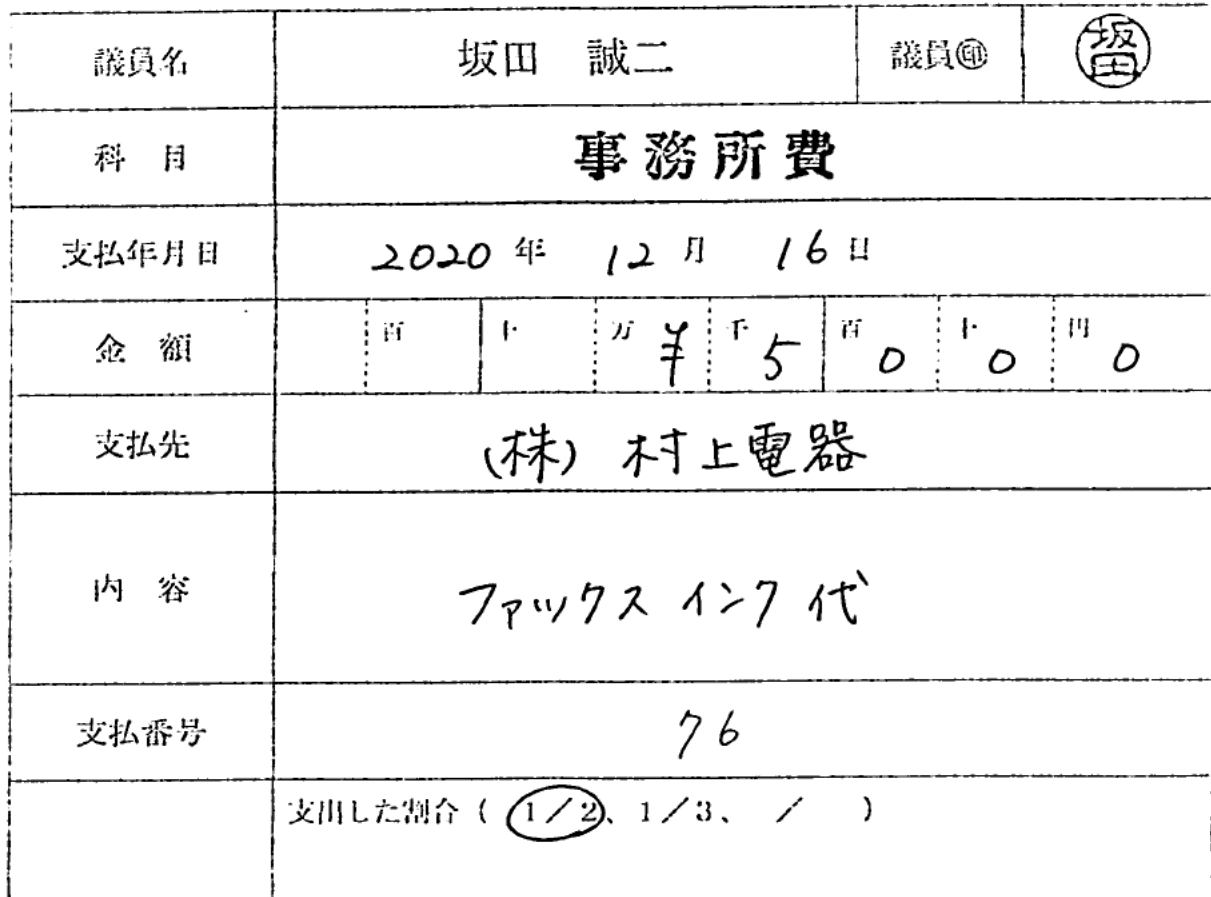 議員名 坂田 誠二 議員㊞ 坂田
科 目 事務所費
支払年月日 2020 年 12 月 16 日
金 額 百 十 万 ¥ 千 5 百 0 十 0 円 0
支払先 (株) 村上電器
内 容 ファックス インク 代
支払番号 76
支出した割合 ( 1/2、1/3、 / )